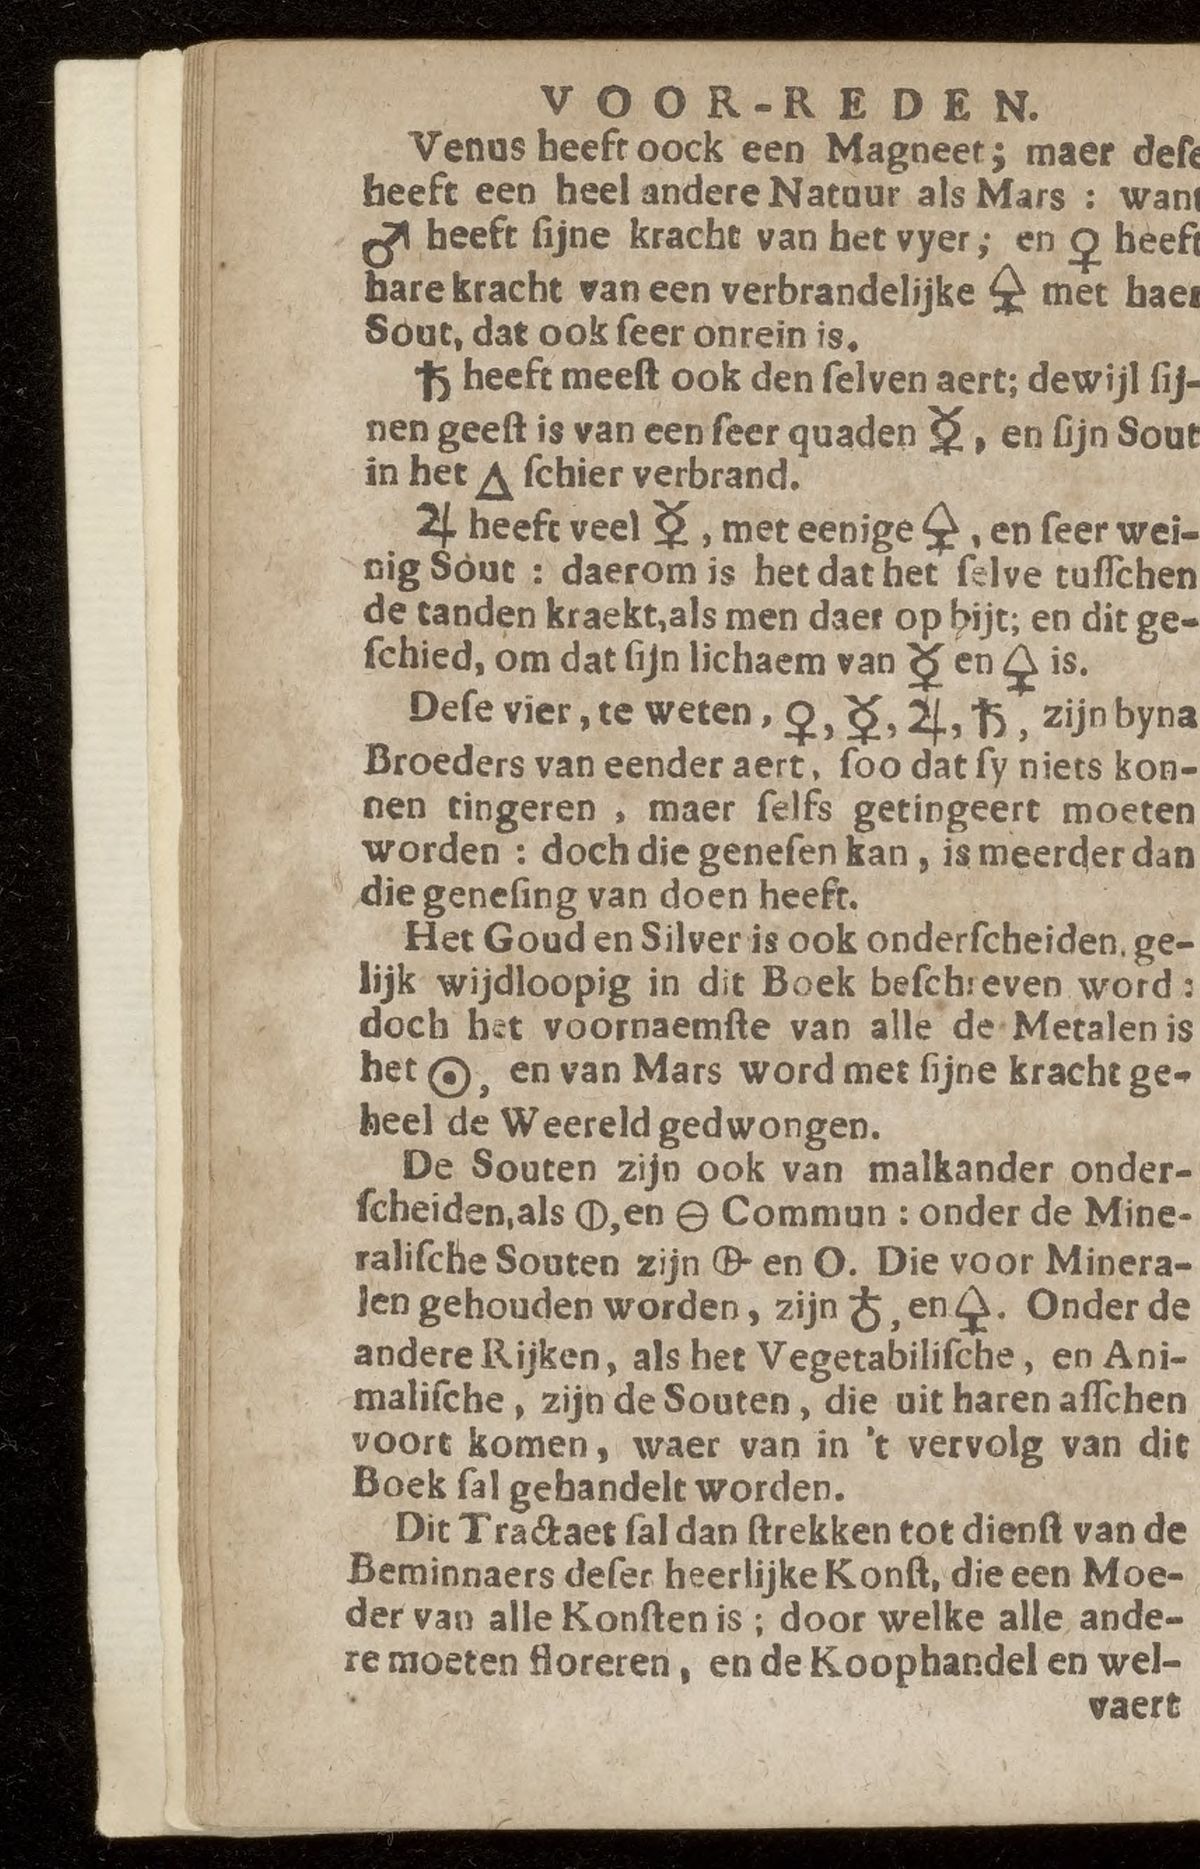 VOOR-REDEN.
Venus heeft oock een Magneet; maer deſe
heeft een heel andere Natuur als Mars : want
♂ heeft ſijne kracht van het vyer; en ♀ heeft
hare kracht van een verbrandelijke 🜍 met haer
Sout, dat ook ſeer onrein is.
♄ heeft meeſt ook den ſelven aert; dewijl ſij-
nen geeſt is van een ſeer quaden ☿, en ſijn Sout
in het 🜂 ſchier verbrand.
♃ heeft veel ☿, met eenige 🜍, en ſeer wei-
nig Sout : daerom is het dat het ſelve tuſſchen
de tanden kraekt, als men daer op bijt; en dit ge-
ſchied, om dat ſijn lichaem van ☿ en 🜍 is.
Deſe vier, te weten, ♀, ☿, ♃, ♄, zijn byna
Broeders van eender aert, ſoo dat ſy niets kon-
nen tingeren, maer ſelfs getingeert moeten
worden : doch die geneſen kan, is meerder dan
die geneſing van doen heeft.
Het Goud en Silver is ook onderſcheiden, ge-
lijk wijdloopig in dit Boek beſchreven word :
doch het voornaemſte van alle de Metalen is
het ☉, en van Mars word met ſijne kracht ge-
heel de Weereld gedwongen.
De Souten zijn ook van malkander onder-
ſcheiden, als ⦶, en ⊖ Commun : onder de Mine-
raliſche Souten zijn 🜖 en O. Die voor Minera-
len gehouden worden, zijn ♁, en 🜍. Onder de
andere Rijken, als het Vegetabiliſche, en Ani-
maliſche, zijn de Souten, die uit haren aſſchen
voort komen, waer van in 't vervolg van dit
Boek ſal gehandelt worden.
Dit Tractaet ſal dan ſtrekken tot dienſt van de
Beminnaers deſer heerlijke Konſt, die een Moe-
der van alle Konſten is ; door welke alle ande-
re moeten floreren, en de Koophandel en wel-
vaert